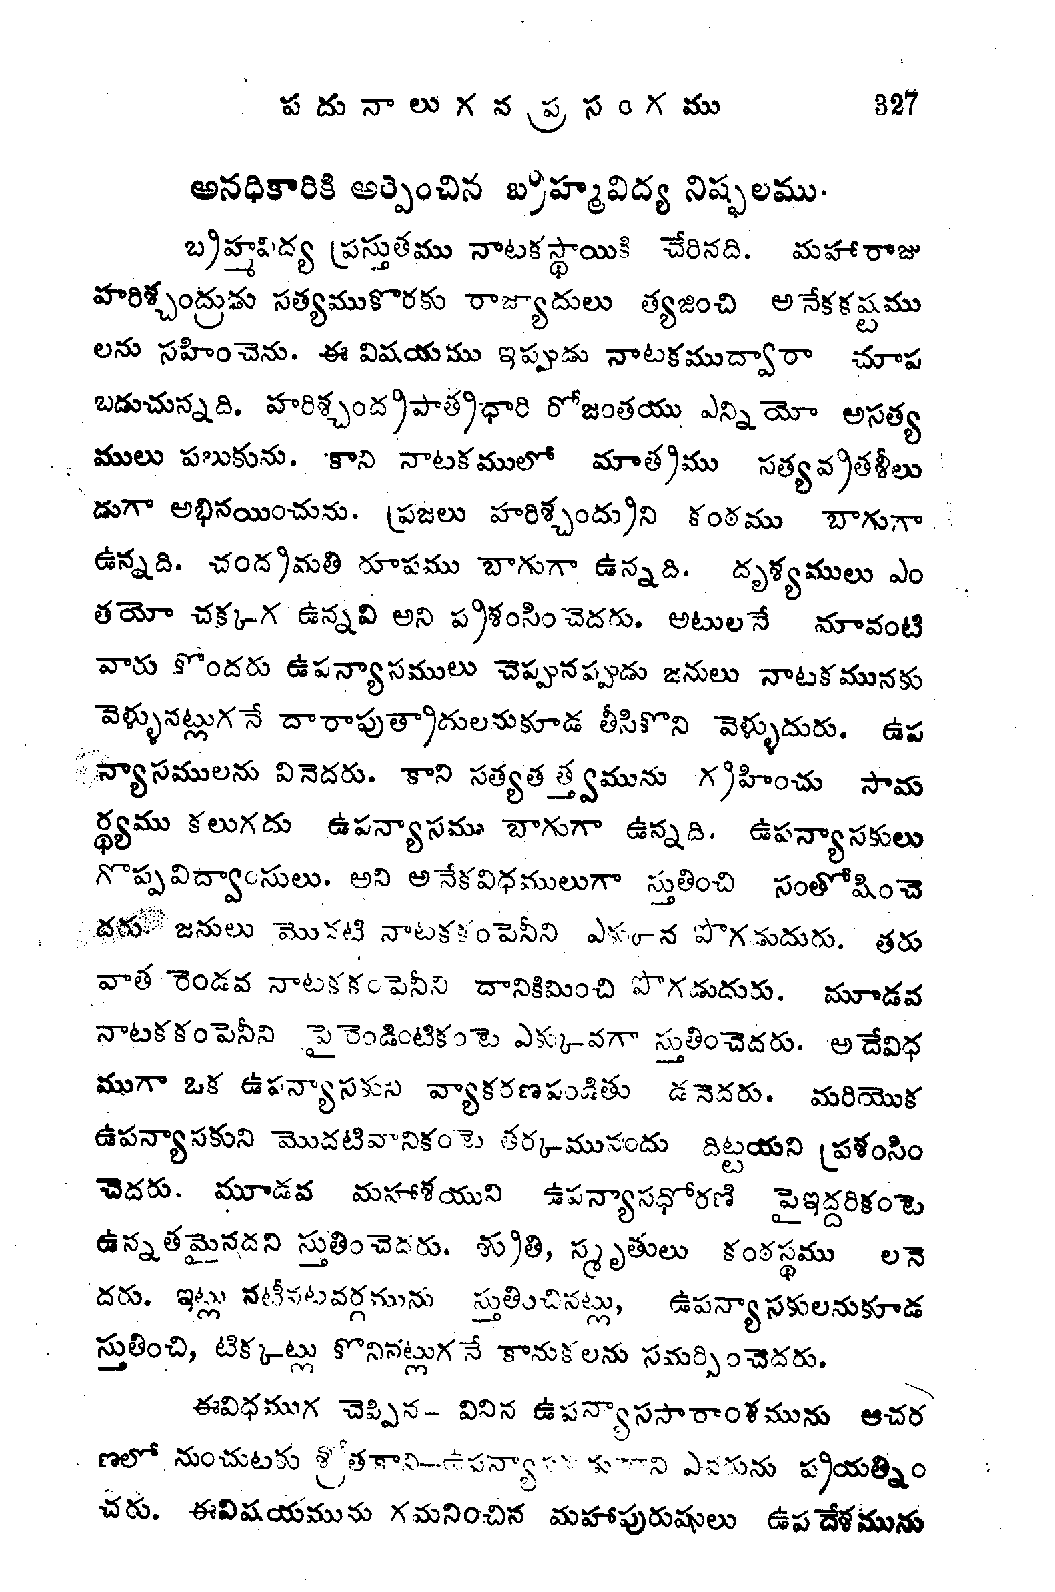 పదునాలుగన ప్రసంగము 327
అనధికారికి అర్పించిన బ్రహ్మవిద్య నిష్ఫలము.
బ్రహ్మవిద్య ప్రస్తుతము నాటకస్థాయికి చేరినది. మహారాజు
హరిశ్చంద్రుడు సత్యముకొరకు రాజ్యాదులు త్యజించి అనేకకష్టము
లను సహించెను. ఈ విషయము ఇప్పుడు నాటకముద్వారా చూప
బడుచున్నది. హరిశ్చంద్రపాత్రధారి రోజంతయు ఎన్నియో అసత్య
ములు పలుకును. కాని నాటకములో మాత్రము సత్యవ్రతశీలు
డుగా అభినయించును. ప్రజలు హరిశ్చంద్రుని కంఠము బాగుగా
ఉన్నది. చంద్రమతి రూపము బాగుగా ఉన్నది. దృశ్యములు ఎం
తయో చక్కగ ఉన్నవి అని ప్రశంసించెదరు. అటులనే మావంటి
వారు కొందరు ఉపన్యాసములు చెప్పునప్పుడు జనులు నాటకమునకు
వెళ్ళునట్లుగనే దారాపుత్రాదులనుకూడ తీసికొని వెళ్ళుదురు. ఉప
న్యాసములను వినెదరు. కాని సత్యతత్త్వమును గ్రహించు సామ
ర్థ్యము కలుగదు ఉపన్యాసము బాగుగా ఉన్నది. ఉపన్యాసకులు
గొప్పవిద్వాంసులు. అని అనేకవిధములుగా స్తుతించి సంతోషించె
దరు. జనులు మొదటి నాటకకంపెనీని ఎక్కువ పొగడుదురు. తరు
వాత రెండవ నాటకకంపెనీని దానికిమించి పొగడుదురు. మూడవ
నాటకకంపెనీని పైరెండింటికంటె ఎక్కువగా స్తుతించెదరు. అదేవిధ
ముగా ఒక ఉపన్యాసకుని వ్యాకరణపండితు డనెదరు. మరియొక
ఉపన్యాసకుని మొదటివానికంటె తర్కమునందు దిట్టయని ప్రశంసిం
చెదరు. మూడవ మహాశయుని ఉపన్యాసధోరణి పైఇద్దరికంటె
ఉన్నతమైనదని స్తుతించెదరు. శ్రుతి, స్మృతులు కంఠస్థము లనె
దరు. ఇట్లు నటీనటవర్గమును స్తుతించినట్లు, ఉపన్యాసకులనుకూడ
స్తుతించి, టిక్కట్లు కొనినట్లుగనే కానుకలను సమర్పించెదరు.
ఈవిధముగ చెప్పిన- వినిన ఉపన్యాససారాంశమును ఆచర
ణలో నుంచుటకు శ్రోతకాని—ఉపన్యాసకుడుకాని ఎవరును ప్రయత్నిం
చరు. ఈవిషయమును గమనించిన మహాపురుషులు ఉపదేశమును